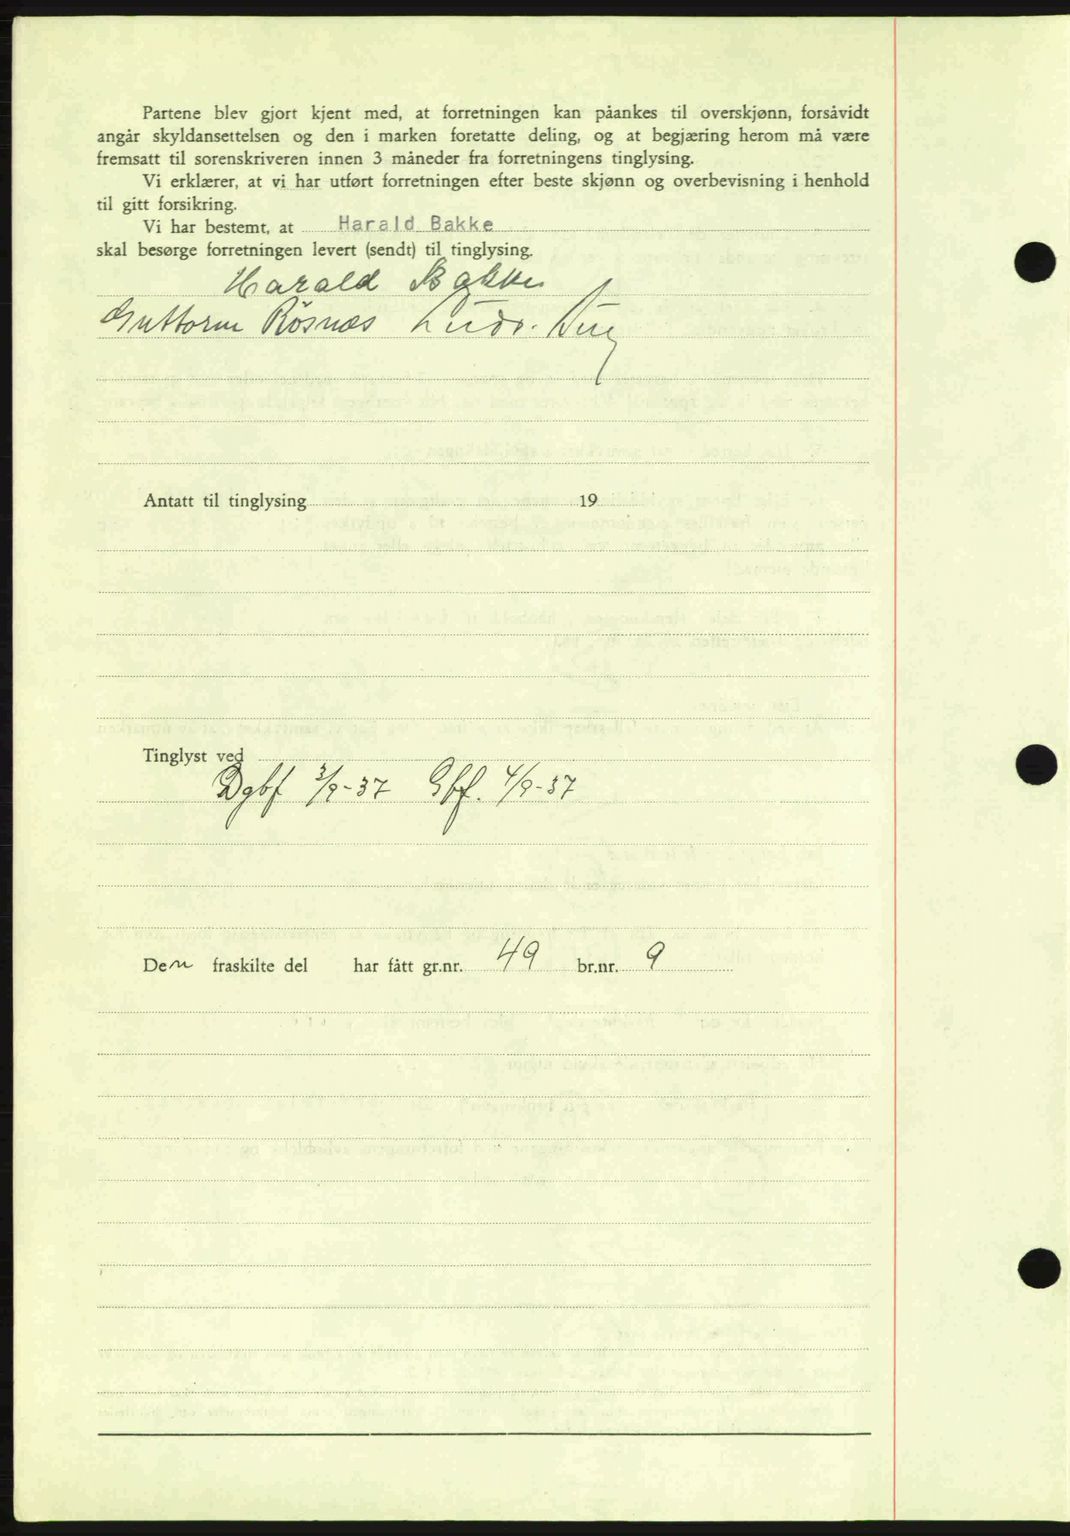 Partene blev gjort kjent med, at forretningen kan påankes til overskjønn, forsåvidt
angår skyldansettelsen og den i marken foretatte deling, og at begjæring herom må være
fremsatt til sorenskriveren innen 3 måneder fra forretningens tinglysing.
Vi erklærer, at vi har utført forretningen efter beste skjønn og overbevisning i henhold
til gitt forsikring.
Vi har bestemt, at Harald Bakke
skal besørge forretningen levert (sendt) til tinglysing.
Harald Bakke
Guttorm Rösnæs Ludv.
Antatt til tinglysing 19
Tinglyst ved
Dgbf 3/9-37 Gbf. 4/9-37
Den fraskilte del har fått gr.nr. 49 br.nr. 9